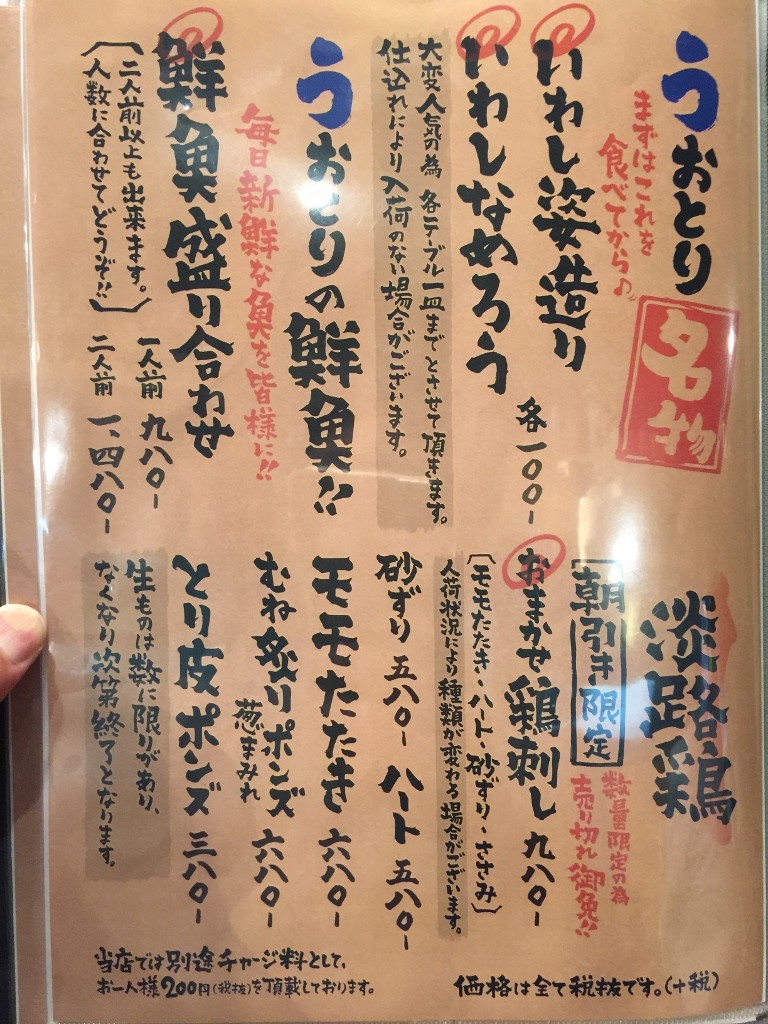 うおとり
名物
まずはこれを
食べてから♪
いわし姿造り
いわしなめろう
各一〇〇-
大変人気の為 各テーブル一皿までとさせて頂きます。
仕込れにより入荷のない場合がございます。
うおとりの鮮魚!!
毎日新鮮な魚を皆様に!!
鮮魚盛り合わせ
一人前 九八〇-
二人前 一、四八〇-
〔二人前以上も出来ます。
人数に合わせてどうぞ!!〕
淡路鶏
朝引き限定
数量限定の為
売り切れ御免!!
おまかせ鶏刺し 九八〇-
〔モモたたき・ハート・砂ずり・ささみ〕
入荷状況により種類が変わる場合がございます。
砂ずり 五八〇- ハート 五八〇-
モモたたき 六八〇-
むね炙りポンズ 六八〇-
葱まみれ
とり皮ポンズ 三八〇-
生ものは数に限りがあり、
なくなり次第終了となります。
価格は全て税抜です。(+税)
当店では別途チャージ料として、
お一人様200円(税抜)を頂戴しております。